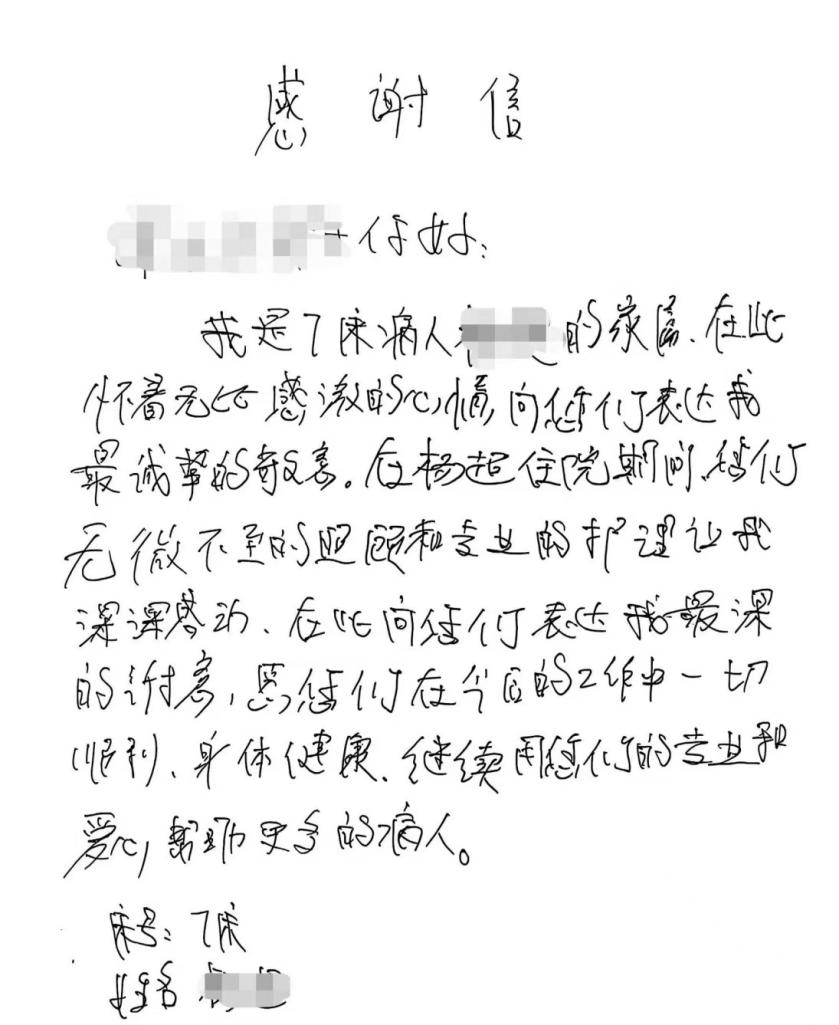 感谢信
你好：
我是7床病人 的家属、在此
怀着无比感激的心情，向您们表达我
最诚挚的敬意。在杨超住院期间，您们
无微不至的照顾和专业的护理让我
深深感动、在此向您们表达我最深
的谢意，愿您们在今后的工作中一切
顺利、身体健康、继续用您们的专业和
爱心，帮助更多的病人。
床号：7床
姓名